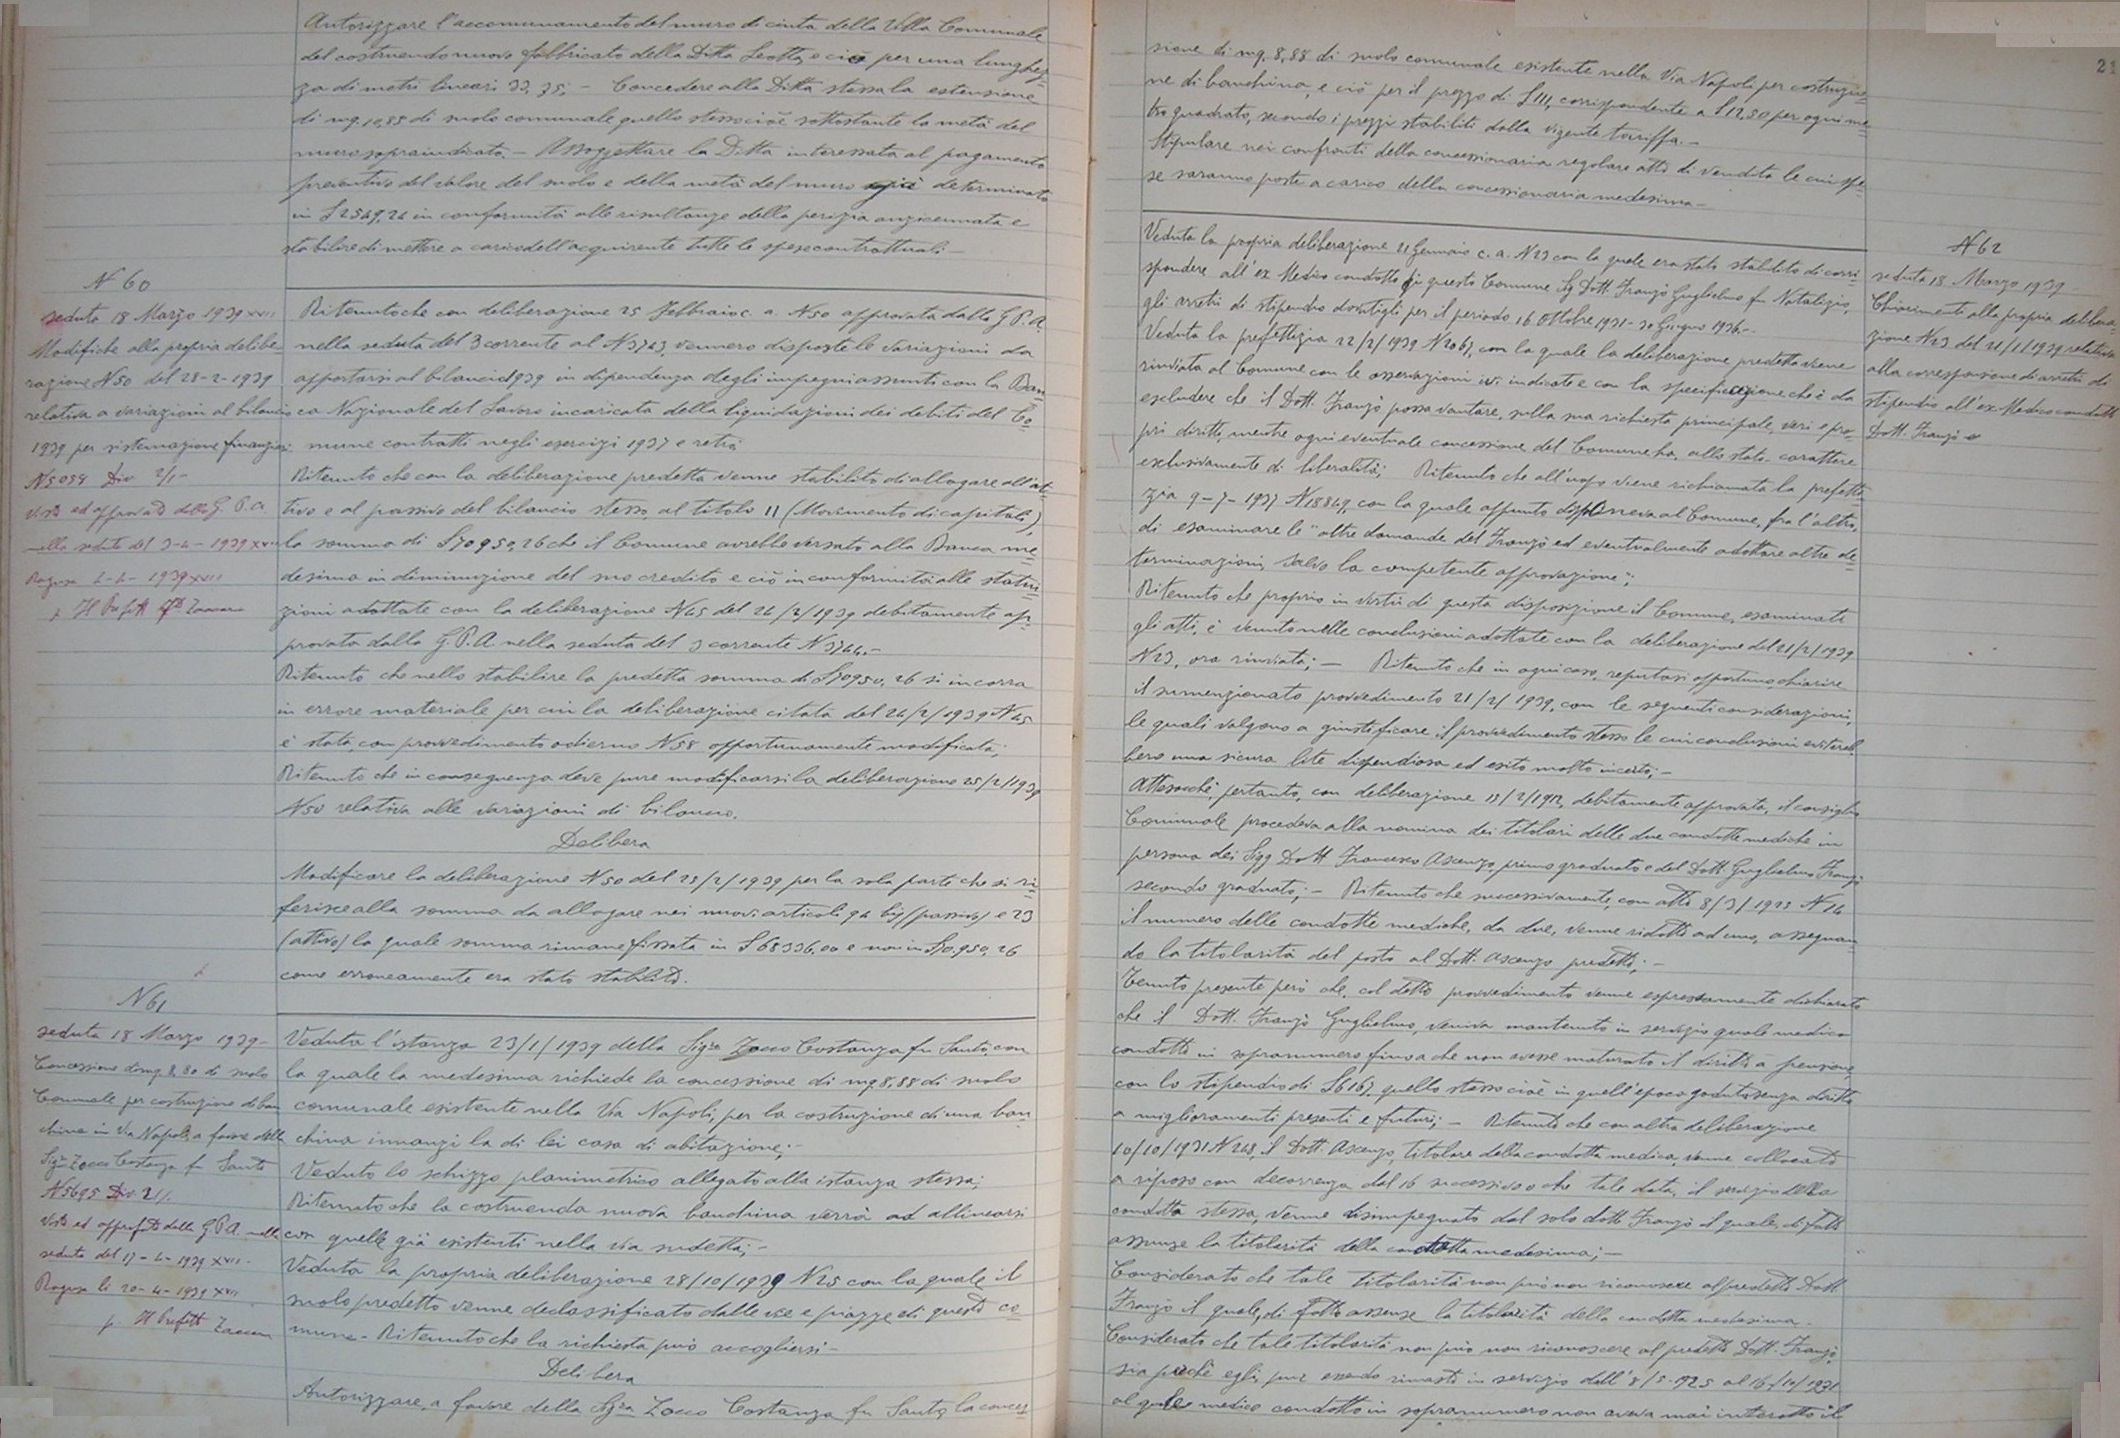 Autorizzare l'accomunamento del muro di cinta della Villa Comunale
del costruendo nuovo fabbricato della Ditta Leotta, e ciò per una lunghez-
za di metri lineari 33,35; - Concedere alla Ditta stessa la estensione
di mq. 10,85 di suolo comunale quello stesso cioè sottostante la metà del
muro sopraindicato. - Assoggettare la Ditta interessata al pagamento
preventivo del valore del suolo e della metà del muro già determinato
in £ 2549,24 in conformità alle risultanze della perizia anzicennata e
stabilire di mettere a carico dell'acquirente tutte le spese contrattuali -
N 60
seduta 18 Marzo 1939 XVII
Modifiche alla propria delibe
razione N 50 del 28-2-1939
relativa a variazioni al bilancio
1939 per sistemazione finanziar.
N 5059 Div 2/1 -
Visto ed approvato dalla G. P. A.
nella seduta del 3-4-1939 XVII
Ragusa 4-4-1939 XVII
p Il Prefetto
Ritenuto che con deliberazione 25 Febbraio c. a. N 50 approvata dalla G P. A.
nella seduta del 3 corrente al N 3743, vennero disposte le variazioni da
apportarsi al bilancio 1939 in dipendenza degli impegni assunti con la Ban-
ca Nazionale del Lavoro incaricata della liquidazioni dei debiti del Co-
mune contratti negli esercizi 1937 e retro;
Ritenuto che con la deliberazione predetta venne stabilito di allogare all'at-
tivo e al passivo del bilancio stesso, al titolo II (Movimento di capitali),
la somma di £ 70950,26 che il Comune avrebbe versato alla Banca me-
desima in diminuzione del suo credito e ciò in conformità alle statui-
zioni adottate con la deliberazione N 45 del 24/2/1939 debitamente ap-
provata dalla G. P. A nella seduta del 3 corrente N 3744. -
Ritenuto che nello stabilire la predetta somma di £ 70950,26 si incorra
in errore materiale per cui la deliberazione citata del 24/2/1939 N 45
è stata, con provvedimento odierno N 58 opportunamente modificata;
Ritenuto che in conseguenza deve pure modificarsi la deliberazione 25/2/1939
N 50 relativa alle variazioni di bilancio.
Delibera
Modificare la deliberazione N 50 del 25/2/1939 per la sola parte che si ri-
ferisce alla somma da allogare nei nuovi articoli 94 bis (passivo) e 23
(attivo) la quale somma rimane fissata in £ 68336,00 e non in £ 70,950,26
come erroneamente era stato stabilito.
N 61
seduta 18 Marzo 1939 -
Concessione di mq. 8,80 di suolo
Comunale per costruzione di ban
china in Via Napoli, a favore della
Sig.ra Zocco Costanza fu Santo
N 5695 Div. 2/1.
Visto ed approvato dalla G P. A. nella
seduta del 17-4-1939 XVII -
Ragusa li 20-4-1939 XVII
p. Il Prefetto
Veduta l'istanza 23/1/1939 della Sig.ra Zocco Costanza fu Santo, con
la quale la medesima richiede la concessione di mq. 8,88 di suolo
comunale esistente nella Via Napoli, per la costruzione di una ban
china innanzi la di lei casa di abitazione; -
Veduto lo schizzo planimetrico allegato alla istanza stessa;
Ritenuto che la costruenda nuova banchina verrà ad allinearsi
con quelle già esistenti nella via sudetta; -
Veduta la propria deliberazione 28/10/1939 N 25 con la quale il
suolo predetto venne declassificato dalle vie e piazze di questo co-
mune - Ritenuto che la richiesta può accogliersi -
Delibera
Autorizzare, a favore della Sig.ra Zocco Costanza fu Santo, la conces
21
sione di mq. 8,88 di suolo comunale esistente nella Via Napoli per costruzio-
ne di banchina, e ciò per il prezzo di £ 111, corrispondente a £ 12,50 per ogni me-
tro quadrato, secondo i prezzi stabiliti dalla vigente tariffa. -
Stipulare nei confronti della concessionaria regolare atto di vendita le cui spe-
se saranno poste a carico della concessionaria medesima -
N 62
seduta 18 Marzo 1939 -
Chiarimenti alla propria delibera
zione N 23 del 21/1/1939 relativa
alla corresponsione di arretri di
stipendio all'ex Medico condotto
Dott. Franzò
Veduta la propria deliberazione 21 Gennaio c. a. N 23 con la quale era stato stabilito di corri-
spondere all'ex Medico condotto di questo Comune Sig Dott. Franzò Guglielmo fu Natalizio,
gli arretri di stipendio dovutigli per il periodo 16 Ottobre 1931 - 30 Giugno 1936. -
Veduta la prefettizia 22/2/1939 N 2067, con la quale la deliberazione predetta viene
rinviata al Comune con le osservazioni ivi indicate e con la specificazione che è da
escludere che il Dott. Franzò possa vantare, sulla sua richiesta principale, veri e pro-
pri diritti, mentre ogni eventuale concessione del Comune ha, allo stato, carattere
esclusivamente di liberalità; Ritenuto che all'uopo viene richiamata la prefetti-
zia 9-7-1937 N 18849, con la quale appunto disponeva al Comune, fra l'altro,
di esaminare le "altre domande del Franzò ed eventualmente adottare altre de-
terminazioni, salvo la competente approvazione";
Ritenuto che proprio in virtù di questa disposizione il Comune, esaminati
gli atti, è venuto nelle conclusioni adottate con la deliberazione del 21/2/1939
N 23, ora rinviata; - Ritenuto che in ogni caso, reputasi opportuno chiarire
il sumenzionato provvedimento 21/2/1939, con le seguenti considerazioni,
le quali valgono a giustificare il provvedimento stesso le cui conclusioni eviterеb-
bero una sicura lite dispendiosa ed esito molto incerto; -
Attesocchè, pertanto, con deliberazione 13/2/1912, debitamente approvata, il consiglio
Comunale procedeva alla nomina dei titolari delle due condotte mediche in
persona dei Sigg Dott Francesco Ascenzo, primo graduato e del Dott. Guglielmo Franzò
secondo graduato; - Ritenuto che successivamente, con atto 8/3/1923 N 14
il numero delle condotte mediche, da due, venne ridotto ad uno, assegnan-
do la titolarità del posto al Dott. Ascenzo predetto; -
Tenuto presente però che, col detto provvedimento venne espressamente dichiarato
che il Dott. Franzò Guglielmo, veniva mantenuto in servizio quale medico
condotto in soprannumero finoa che non avesse maturato il diritto a pensione,
con lo stipendio di £ 6167, quello stesso cioè in quell'epoca goduto, senza diritto
a miglioramenti presenti e futuri; - Ritenuto che con altra deliberazione
10/10/1931 N 248, il Dott. Ascenzo, titolare della condotta medica, venne collocato
a riposo con decorrenza dal 16 successivo e che tale data, il servizio della
condotta stessa, venne disimpegnato dal solo dott. Franzò il quale, di fatto
assunse la titolarità della condotta medesima; -
Considerato che tale titolarità non può non riconoscere al predetto Dott.
Franzò il quale, di fatto assunse la titolarità della condotta medesima. -
Considerato che tale titolarità non può non riconoscere al predetto Dott. Franzò,
sia perchè egli, pur essendo rimasto in servizio dall'8/5-925 al 16/10/1931
al quale medico condotto in soprannumero non aveva mai interotto il